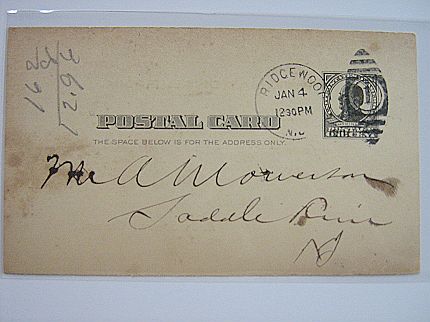 16 
129
RIDGEWOOD
JAN 4
1230PM
N.J.
1
POSTAL CARD
THE SPACE BELOW IS FOR THE ADDRESS ONLY.
Mr A M
Saddle River
NJ